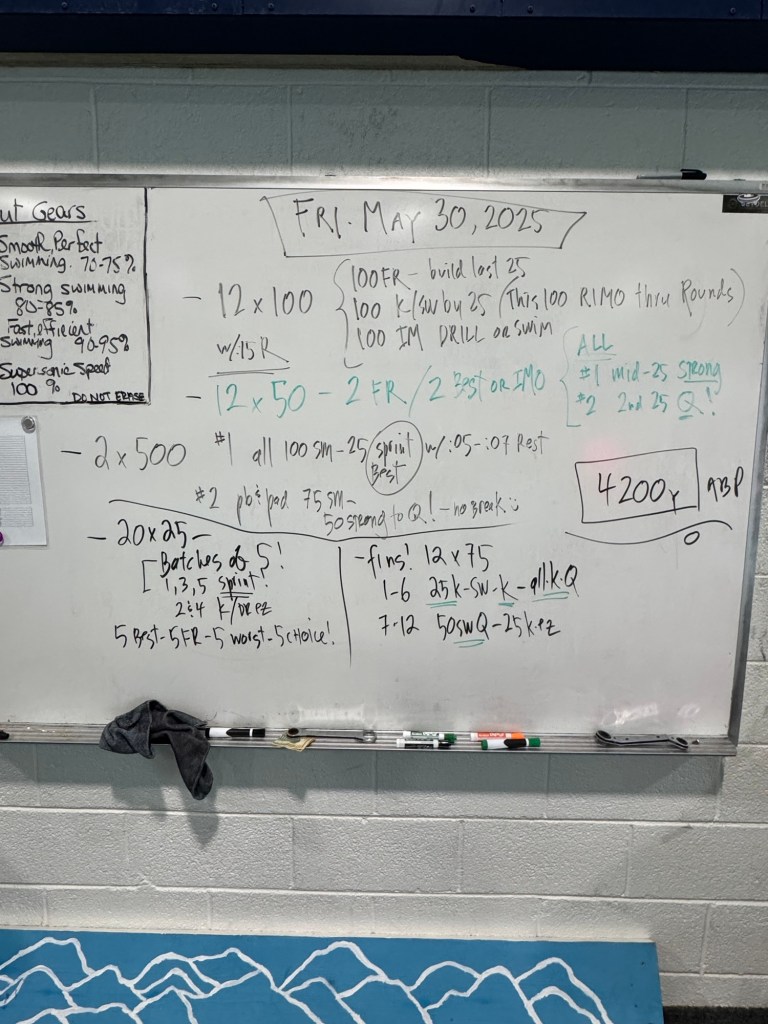 ut Gears
Smooth, Perfect
Swimming. 70-75%
Strong swimming
80-85%
Fast, efficient
Swimming 90-95%
Supersonic Speed
100 %
DO NOT ERASE
FRI. MAY 30, 2025
- 12 x 100
w/:15 R
100 FR - build last 25
100 K/SW by 25 (This 100 RIMO thru Rounds)
100 IM DRILL or swim
- 12 x 50 - 2 FR / 2 Best or IMO
ALL
#1 mid-25 strong
#2 2nd 25 Q!
- 2 x 500 #1 all 100 sm - 25 sprint w/:05-:07 Rest
Best
#2 pb & pad 75 sm -
50 strong to Q! - no Break
4200y
- 20 x 25 -
Batches of 5!
1, 3, 5 sprint!
2 & 4 K/DR ez
5 Best - 5 FR - 5 worst - 5 choice!
- fins! 12 x 75
1-6 25k - sw - k - all.k.Q
7-12 50swQ - 25k.ez